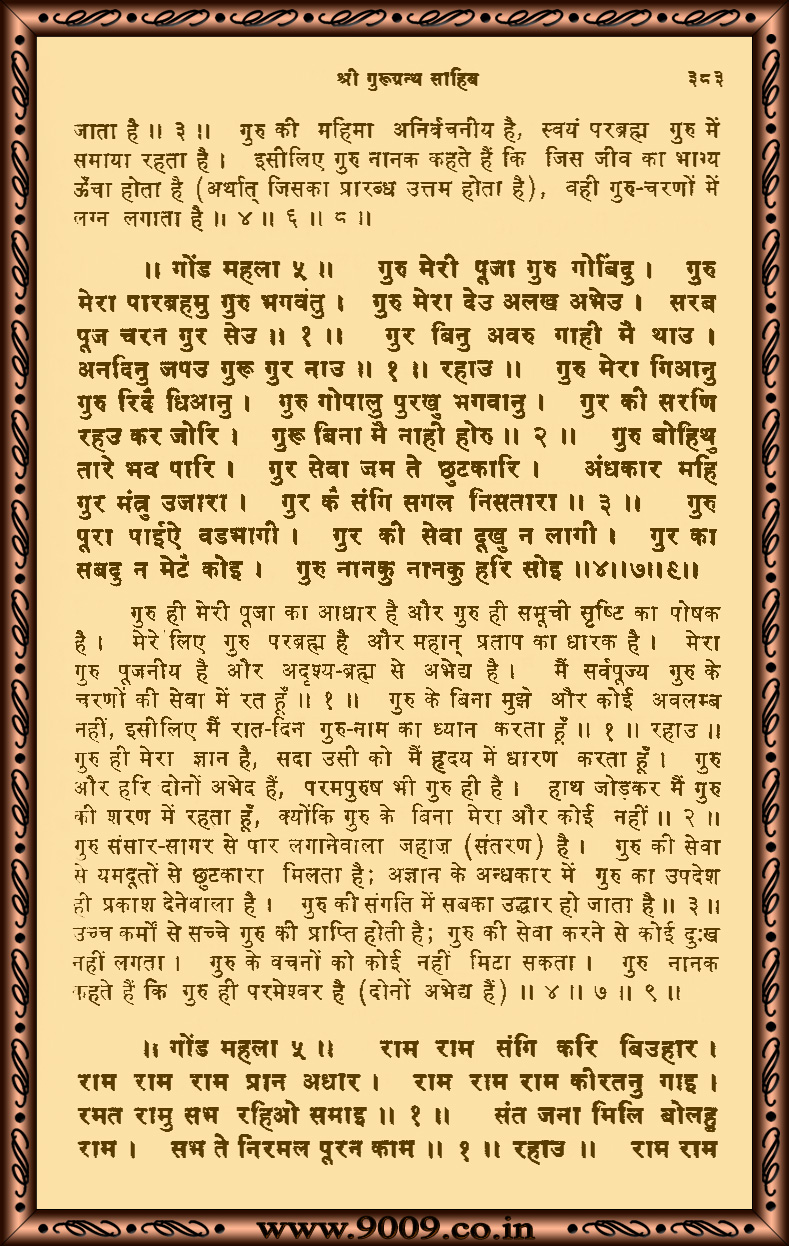 श्री गुरूग्रन्थ साहिब ३८३
जाता है ॥ ३ ॥ गुरु की महिमा अनिर्वचनीय है, स्वयं परब्रह्म गुरु में
समाया रहता है । इसीलिए गुरु नानक कहते हैं कि जिस जीव का भाग्य
ऊँचा होता है (अर्थात् जिसका प्रारब्ध उत्तम होता है), वही गुरु-चरणों में
लग्न लगाता है ॥ ४ ॥ ६ ॥ ८ ॥
॥ गोंड महला ५ ॥ गुरु मेरी पूजा गुरु गोबिंदु । गुरु
मेरा पारब्रहमु गुरु भगवंतु । गुरु मेरा देउ अलख अभेउ । सरब
पूज चरन गुर सेउ ॥ १ ॥ गुर बिनु अवरु नाही मै थाउ ।
अनदिनु जपउ गुरू गुर नाउ ॥ १ ॥ रहाउ ॥ गुरु मेरा गिआनु
गुरु रिदै धिआनु । गुरु गोपालु पुरखु भगवानु । गुर की सरणि
रहउ कर जोरि । गुरू बिना मै नाही होरु ॥ २ ॥ गुरु बोहिथु
तारे भव पारि । गुर सेवा जम ते छुटकारि । अंधकार महि
गुर मंत्रु उजारा । गुर कै संगि सगल निसतारा ॥ ३ ॥ गुरु
पूरा पाईऐ वडभागी । गुर की सेवा दूखु न लागी । गुर का
सबदु न मेटै कोइ । गुरु नानकु नानकु हरि सोइ ॥४॥७॥९॥
गुरु ही मेरी पूजा का आधार है और गुरु ही समूची सृष्टि का पोषक
है । मेरे लिए गुरु परब्रह्म है और महान् प्रताप का धारक है । मेरा
गुरु पूजनीय है और अदृश्य-ब्रह्म से अभेद्य है । मैं सर्वपूज्य गुरु के
चरणों की सेवा में रत हूँ ॥ १ ॥ गुरु के बिना मुझे और कोई अवलम्ब
नहीं, इसीलिए मैं रात-दिन गुरु-नाम का ध्यान करता हूँ ॥ १ ॥ रहाउ ॥
गुरु ही मेरा ज्ञान है, सदा उसी को मैं हृदय में धारण करता हूँ । गुरु
और हरि दोनों अभेद हैं, परमपुरुष भी गुरु ही है । हाथ जोड़कर मैं गुरु
की शरण में रहता हूँ, क्योंकि गुरु के बिना मेरा और कोई नहीं ॥ २ ॥
गुरु संसार-सागर से पार लगानेवाला जहाज (संतरण) है । गुरु की सेवा
से यमदूतों से छुटकारा मिलता है; अज्ञान के अन्धकार में गुरु का उपदेश
ही प्रकाश देनेवाला है । गुरु की संगति में सबका उद्धार हो जाता है ॥ ३ ॥
उच्च कर्मों से सच्चे गुरु की प्राप्ति होती है; गुरु की सेवा करने से कोई दुःख
नहीं लगता । गुरु के वचनों को कोई नहीं मिटा सकता । गुरु नानक
कहते हैं कि गुरु ही परमेश्वर है (दोनों अभेद्य हैं) ॥ ४ ॥ ७ ॥ ९ ॥
॥ गोंड महला ५ ॥ राम राम संगि करि बिउहार ।
राम राम राम प्रान अधार । राम राम राम कीरतनु गाइ ।
रमत रामु सभ रहिओ समाइ ॥ १ ॥ संत जना मिलि बोलहु
राम । सभ ते निरमल पूरन काम ॥ १ ॥ रहाउ ॥ राम राम
www.9009.co.in